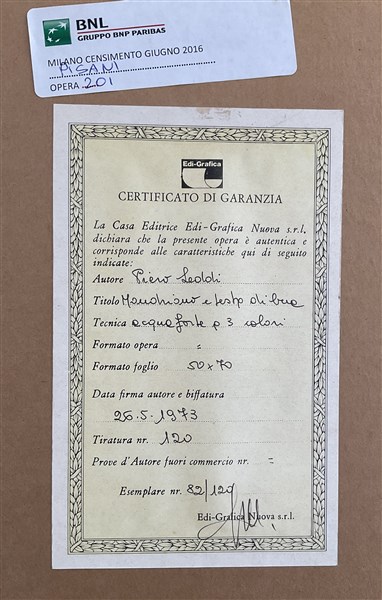 BNL
GRUPPO BNP PARIBAS
MILANO CENSIMENTO GIUGNO 2016
PISANI
OPERA 201
Edi-Grafica
CERTIFICATO DI GARANZIA
La Casa Editrice Edi-Grafica Nuova s.r.l.
dichiara che la presente opera è autentica e
corrisponde alle caratteristiche qui di seguito
indicate:
Autore Piero Leddi
Titolo Mandriano e testa di bue
Tecnica acquaforte a 3 colori
Formato opera "
Formato foglio 50x70
Data firma autore e biffatura
26.5.1973
Tiratura nr. 120
Prove d'Autore fuori commercio nr. =
Esemplare nr. 82/120
Edi-Grafica Nuova s.r.l.